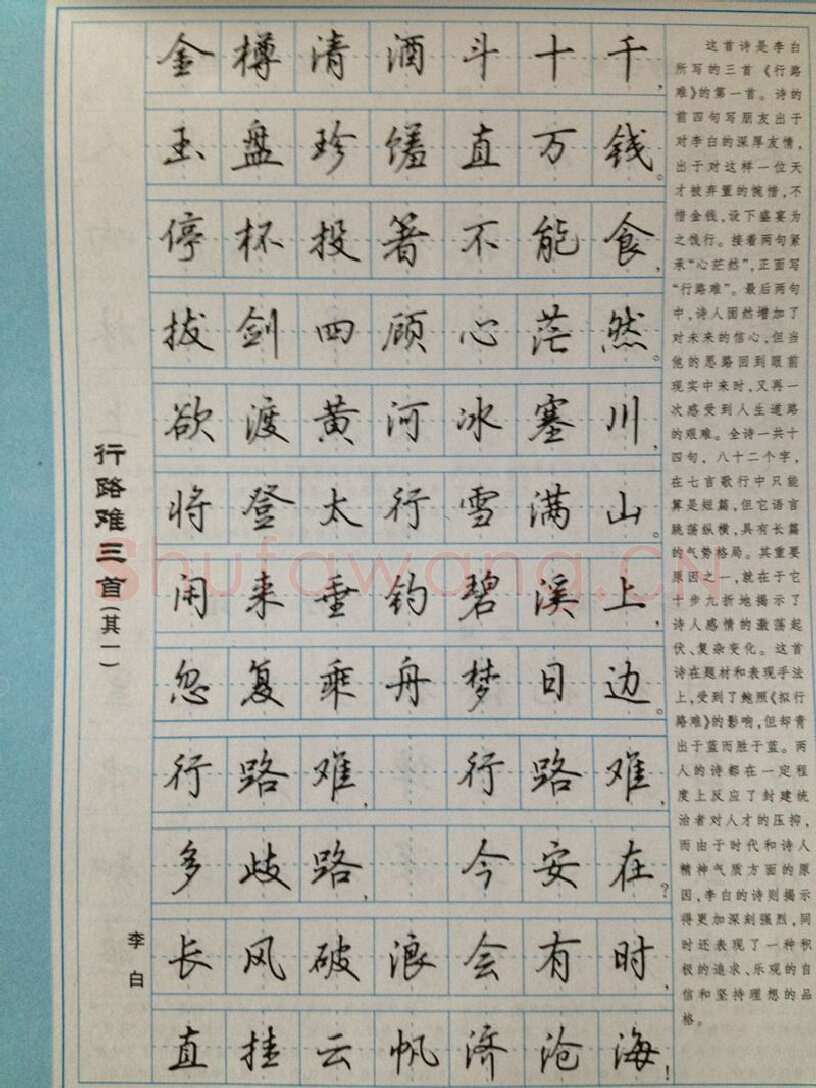 行路难三首(其一)
李白
金樽清酒斗十千,
玉盘珍馐直万钱。
停杯投箸不能食,
拔剑四顾心茫然。
欲渡黄河冰塞川,
将登太行雪满山。
闲来垂钓碧溪上,
忽复乘舟梦日边。
行路难,行路难,
多歧路,今安在?
长风破浪会有时,
直挂云帆济沧海!
这首诗是李白
所写的三首《行路
难》的第一首。诗的
前四句写朋友出于
对李白的深厚友情,
出于对这样一位天
才被弃置的惋惜,不
惜金钱,设下盛宴为
之饯行。接着两句紧
承“心茫然”,正面写
“行路难”。最后两句
中,诗人固然增加了
对未来的信心,但当
他的思路回到眼前
现实中来时,又再一
次感受到人生道路
的艰难。全诗一共十
四句,八十二个字,
在七言歌行中只能
算是短篇,但它语言
跳荡纵横,具有长篇
的气势格局。其重要
原因之一,就在于它
十步九折地揭示了
诗人感情的激荡起
伏、复杂变化。这首
诗在题材和表现手法
上,受到了鲍照《拟行
路难》的影响,但却青
出于蓝而胜于蓝。两
人的诗都在一定程
度上反应了封建统
治者对人才的压抑,
而由于时代和诗人
精神气质方面的原
因,李白的诗则揭示
得更加深刻强烈,同
时还表现了一种积
极的追求、乐观的自
信和坚持理想的品
格。
shufawang.cn